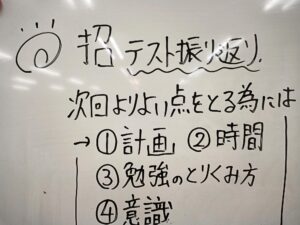 招 テスト振り返り.
次回よりよい点をとる為には
→①計画 ②時間
③勉強のとりくみ方
④意識